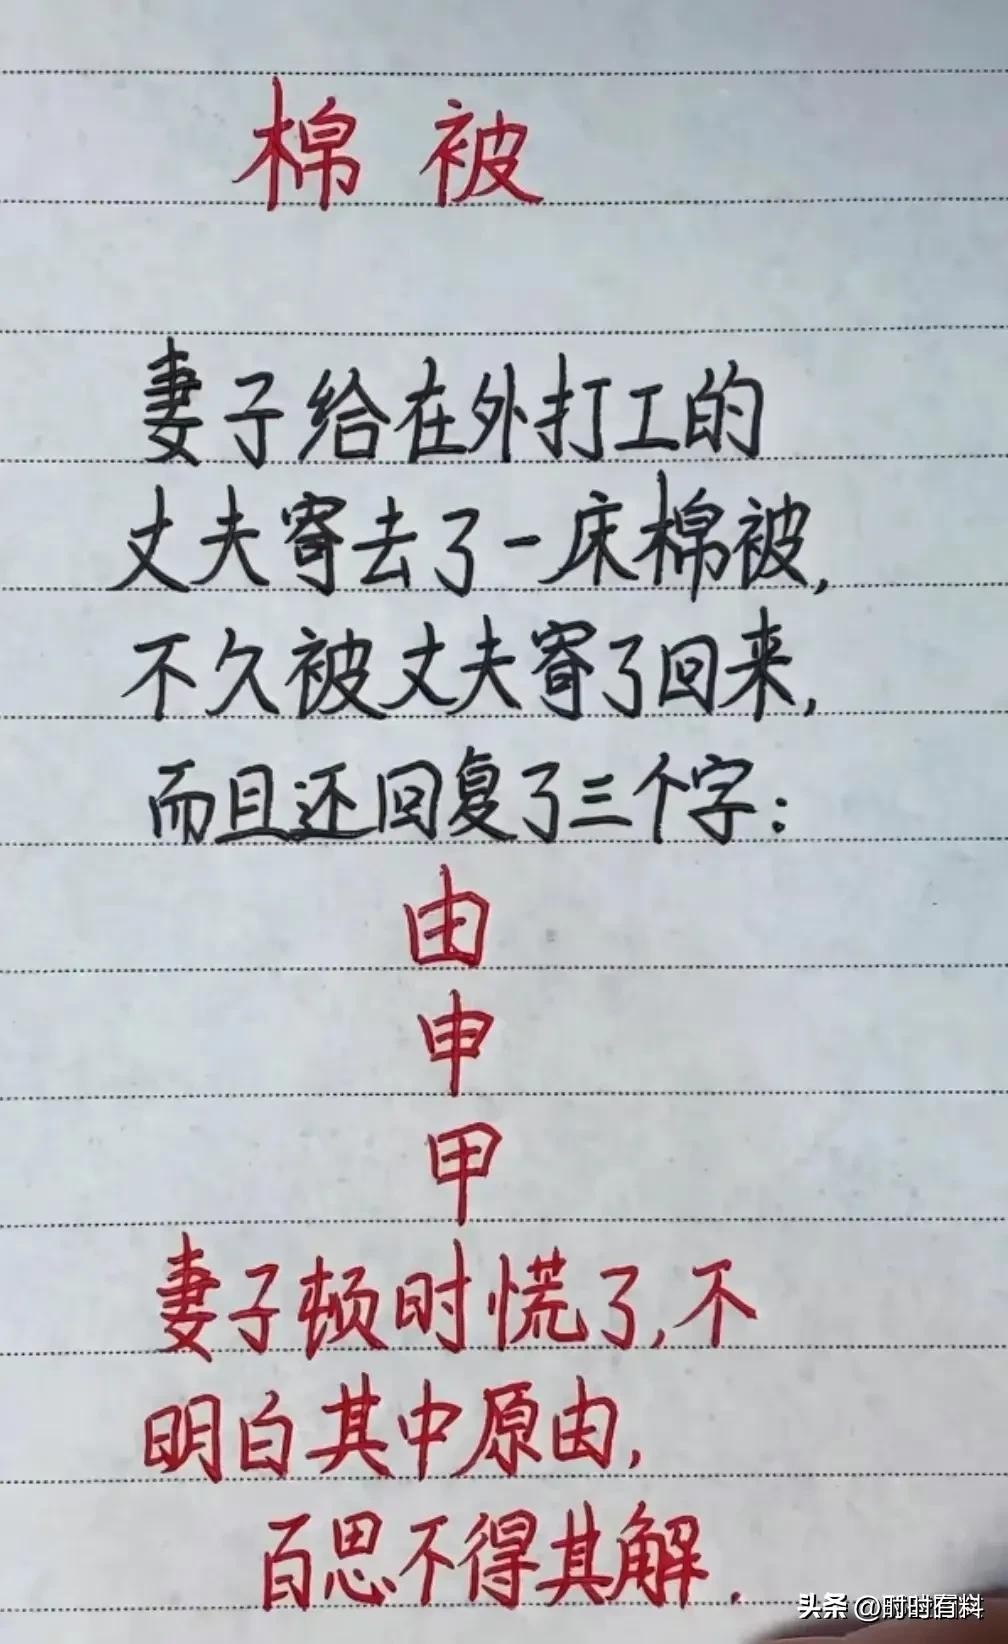 棉被
妻子给在外打工的
丈夫寄去了一床棉被,
不久被丈夫寄了回来,
而且还回复了三个字:
由
申
甲
妻子顿时慌了,不
明白其中原由,
百思不得其解.
头条 @时时有料